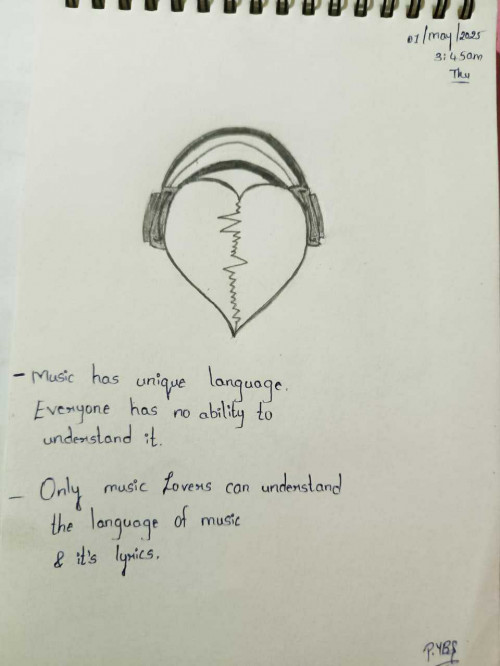 01/may/2025
3:45am
Thu
- Music has unique language.
Everyone has no ability to
understand it.
- Only music Lovers can understand
the language of music
& it's lyrics.